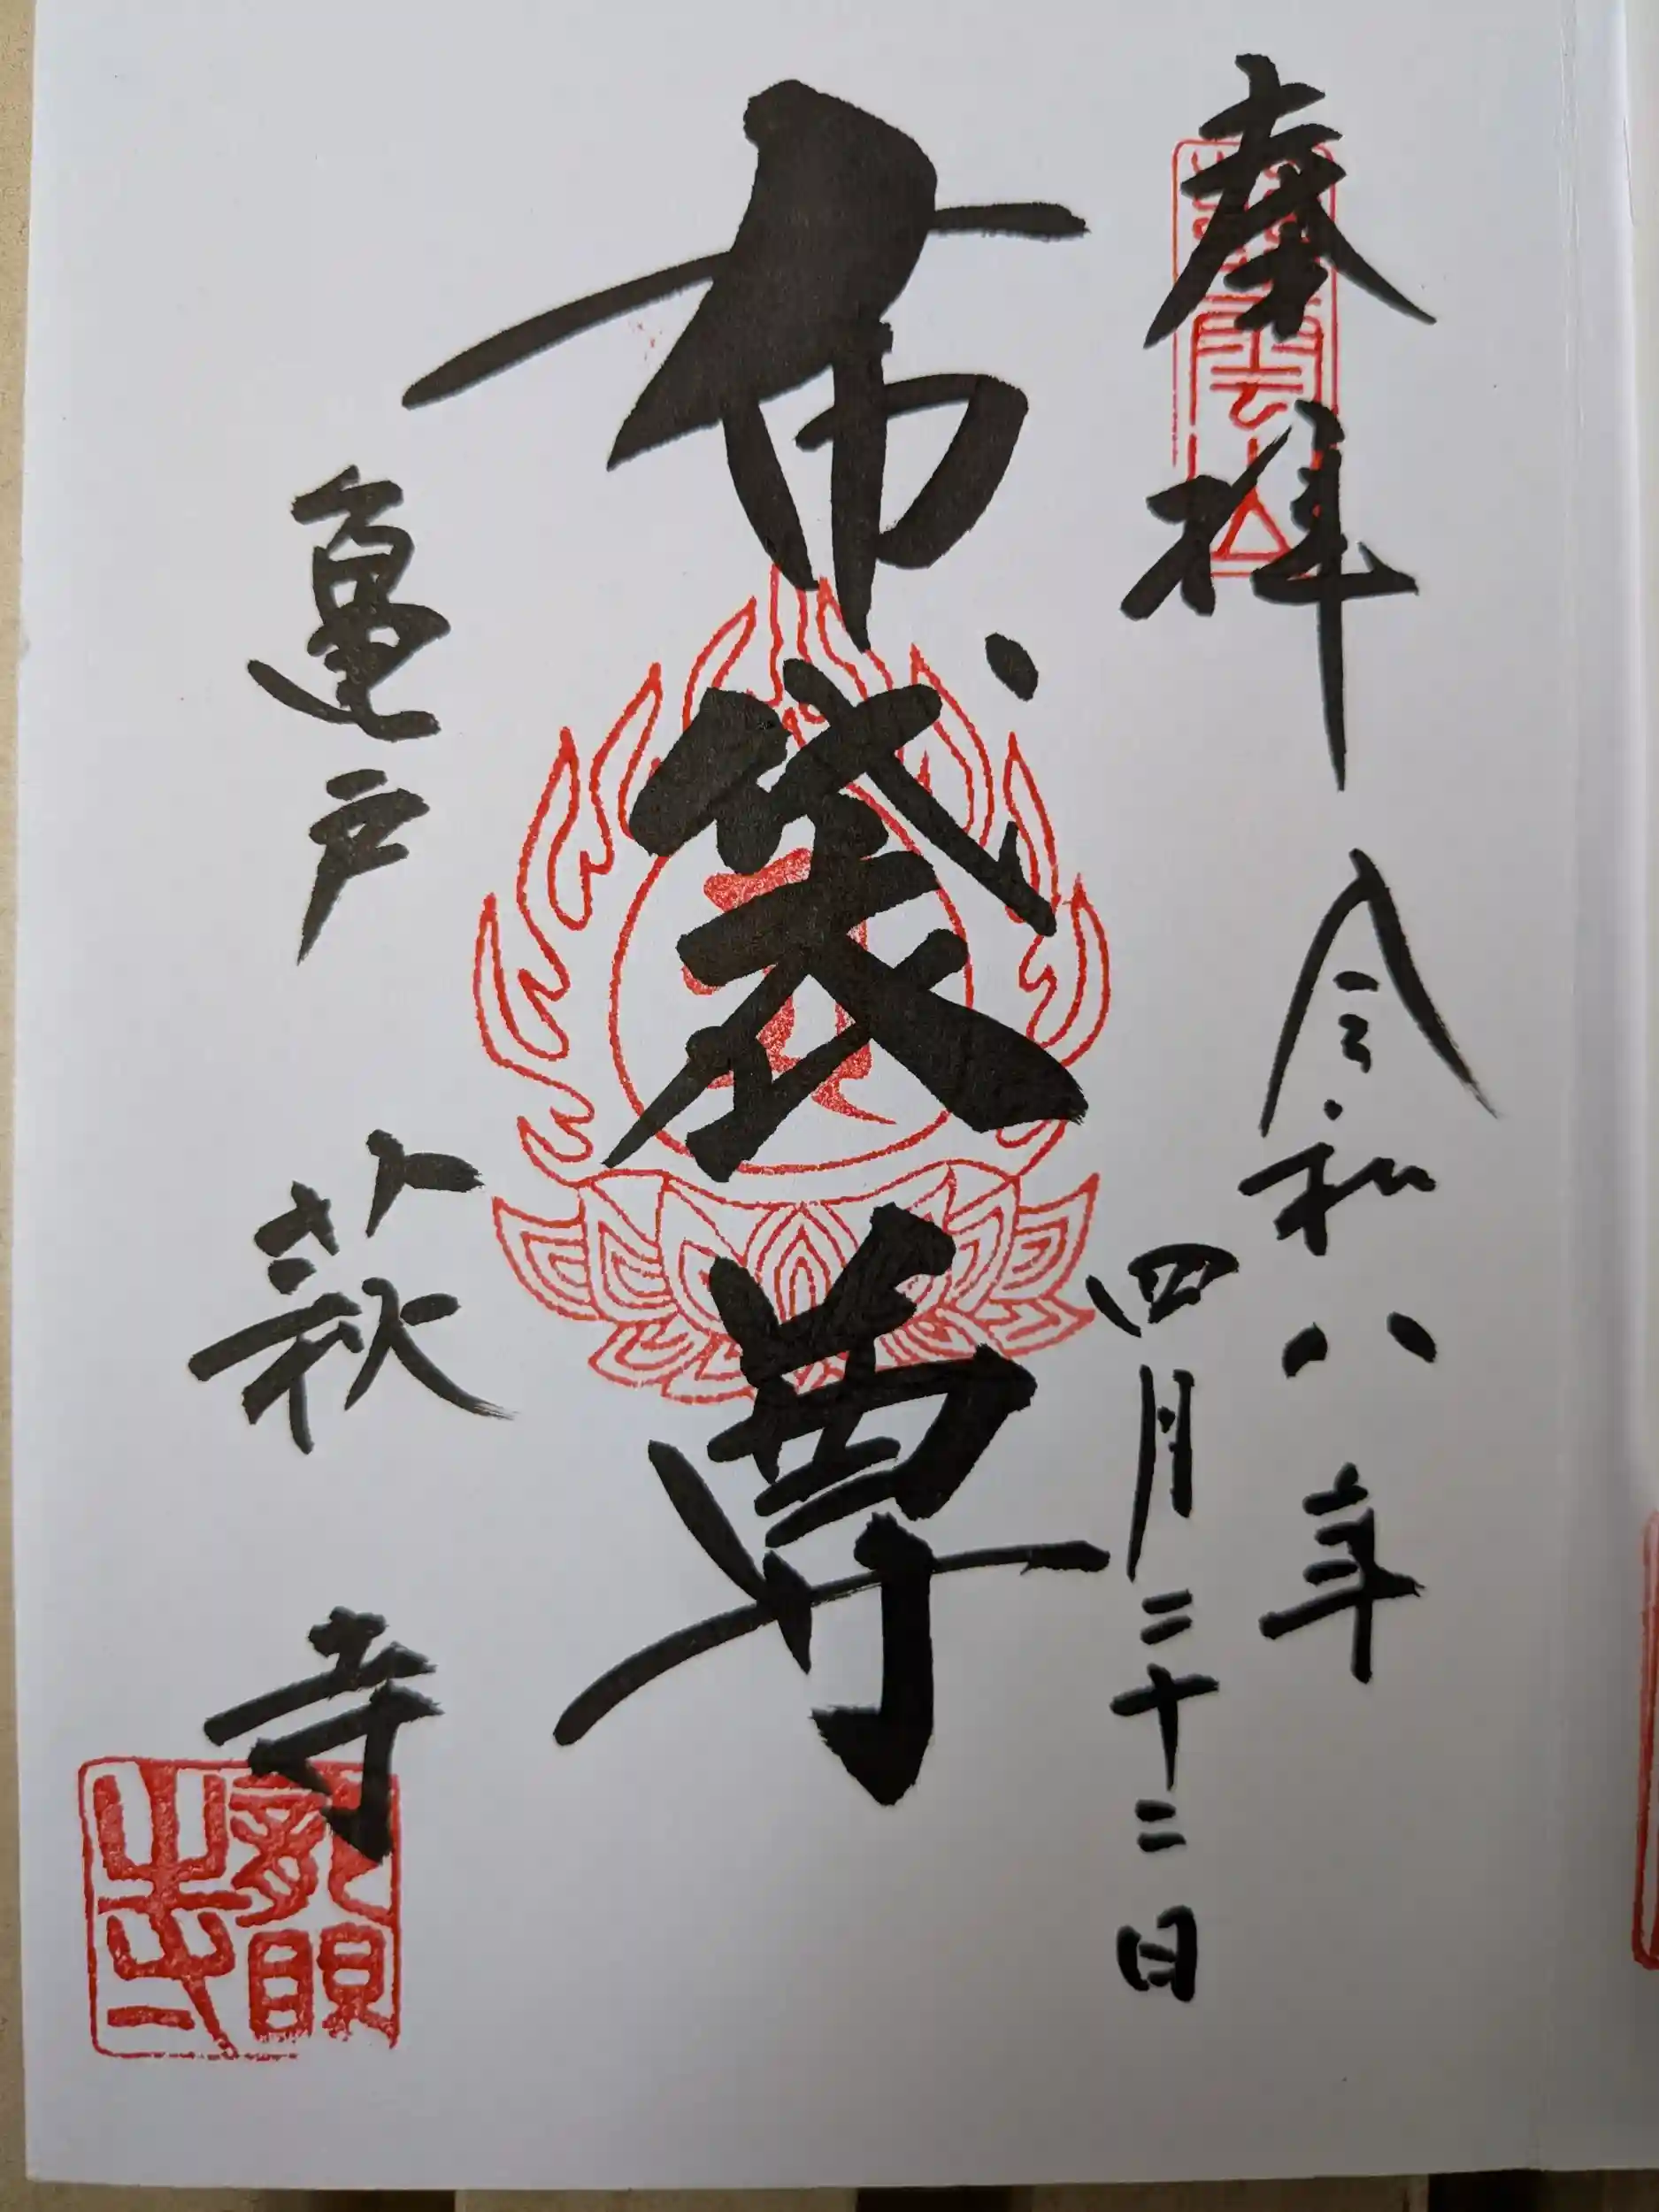 奉拝
令和八年
四月二十二日
布袋尊
亀戸
萩寺